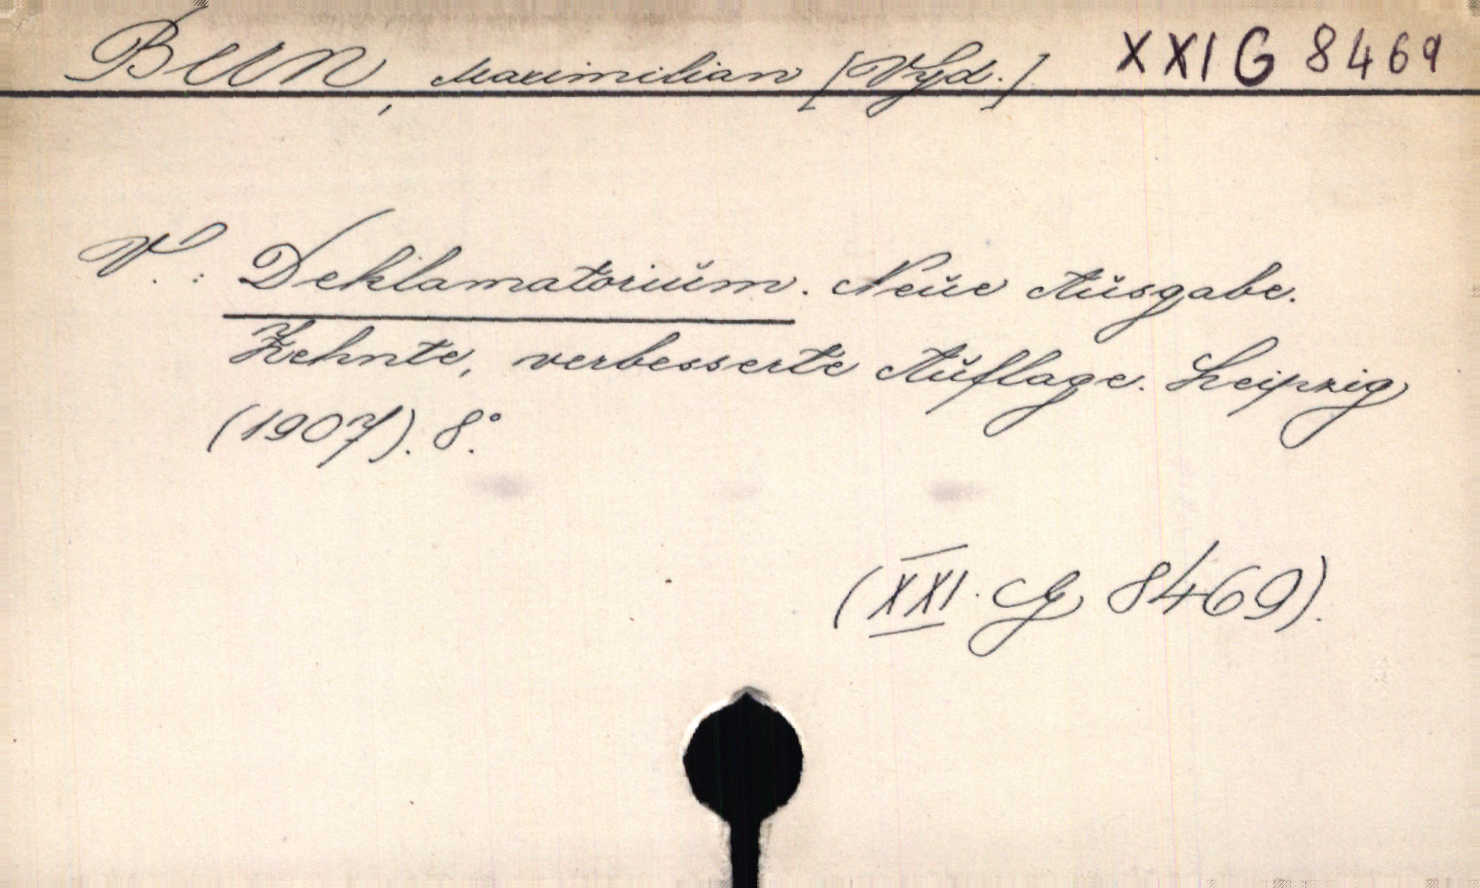 BERN, Maximilian [Vyd.] XXI G 8469
V.: Deklamatorium. Neue Ausgabe.
Zehnte, verbesserte Auflage. Leipzig
(1907). 8°.
(XXI. G 8469).